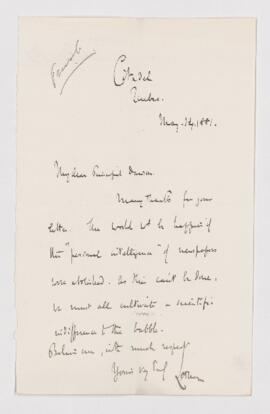 Private
Citadel
Quebec.
May. 24, 1881.
My dear Principal Dawson.
Many thanks for your
letter. The world wd be happier if
this "personal intelligence" of newspapers
were abolished. As this can't be done,
we must all cultivate a scientific
indifference to the babble.
Believe me, with much respect
Yours vy truly
Lorne